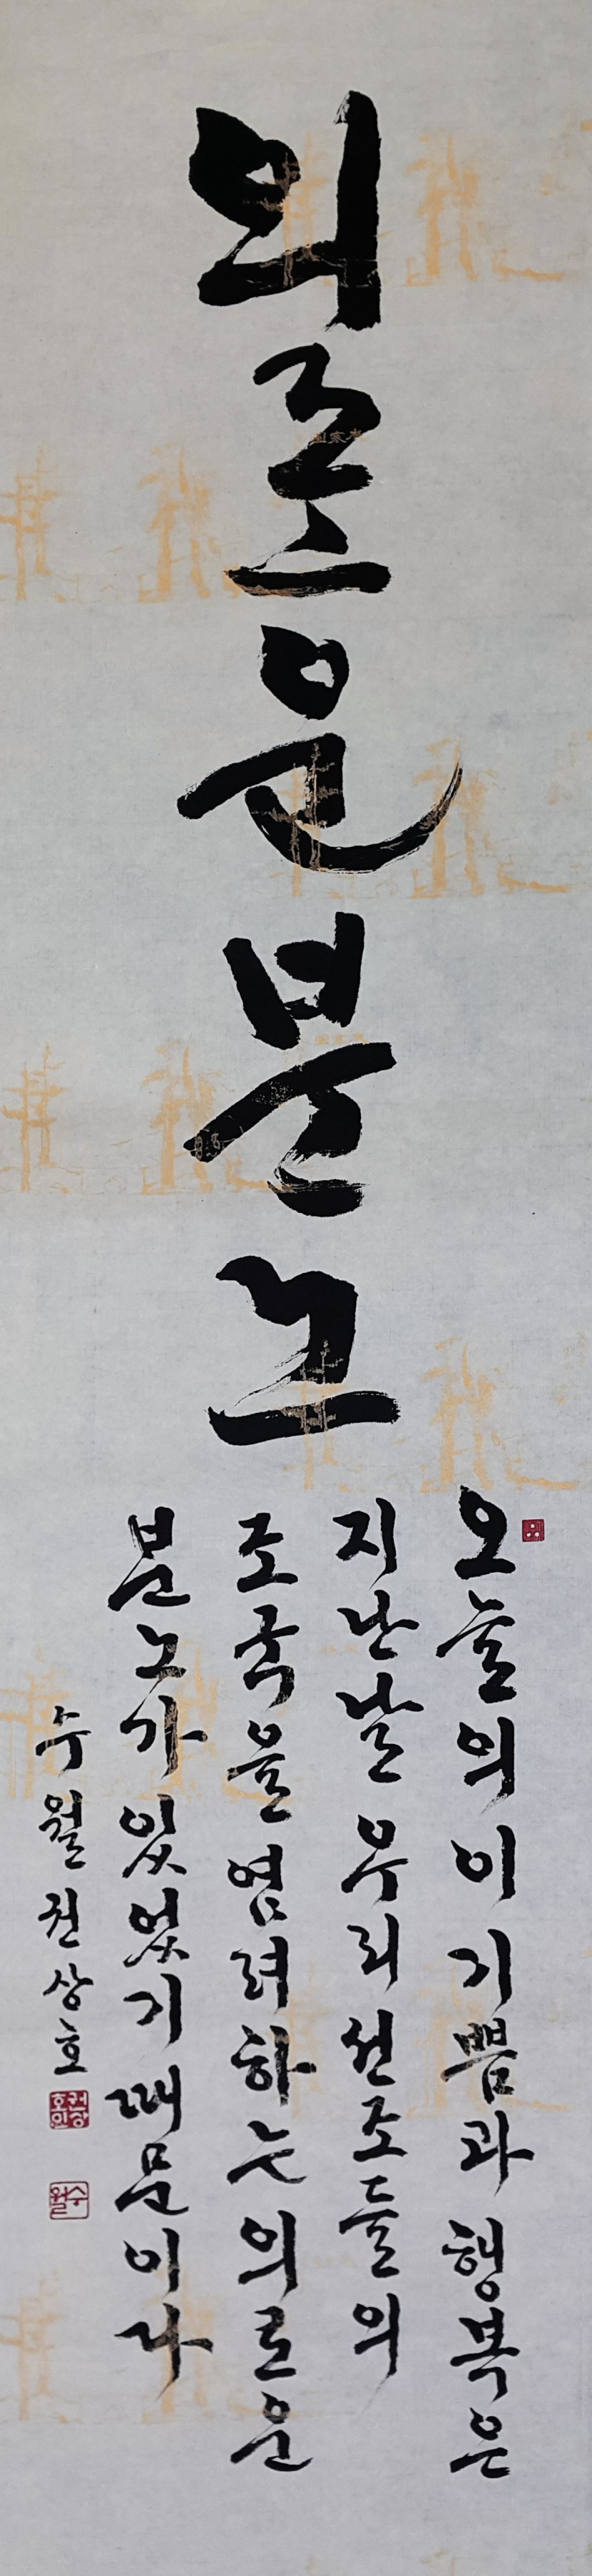 의로운분노
오늘의이기쁨과행복은
지난날우리선조들의
조국을염려하는의로운
분노가있었기때문이다
수월권상호
권상호인
수월